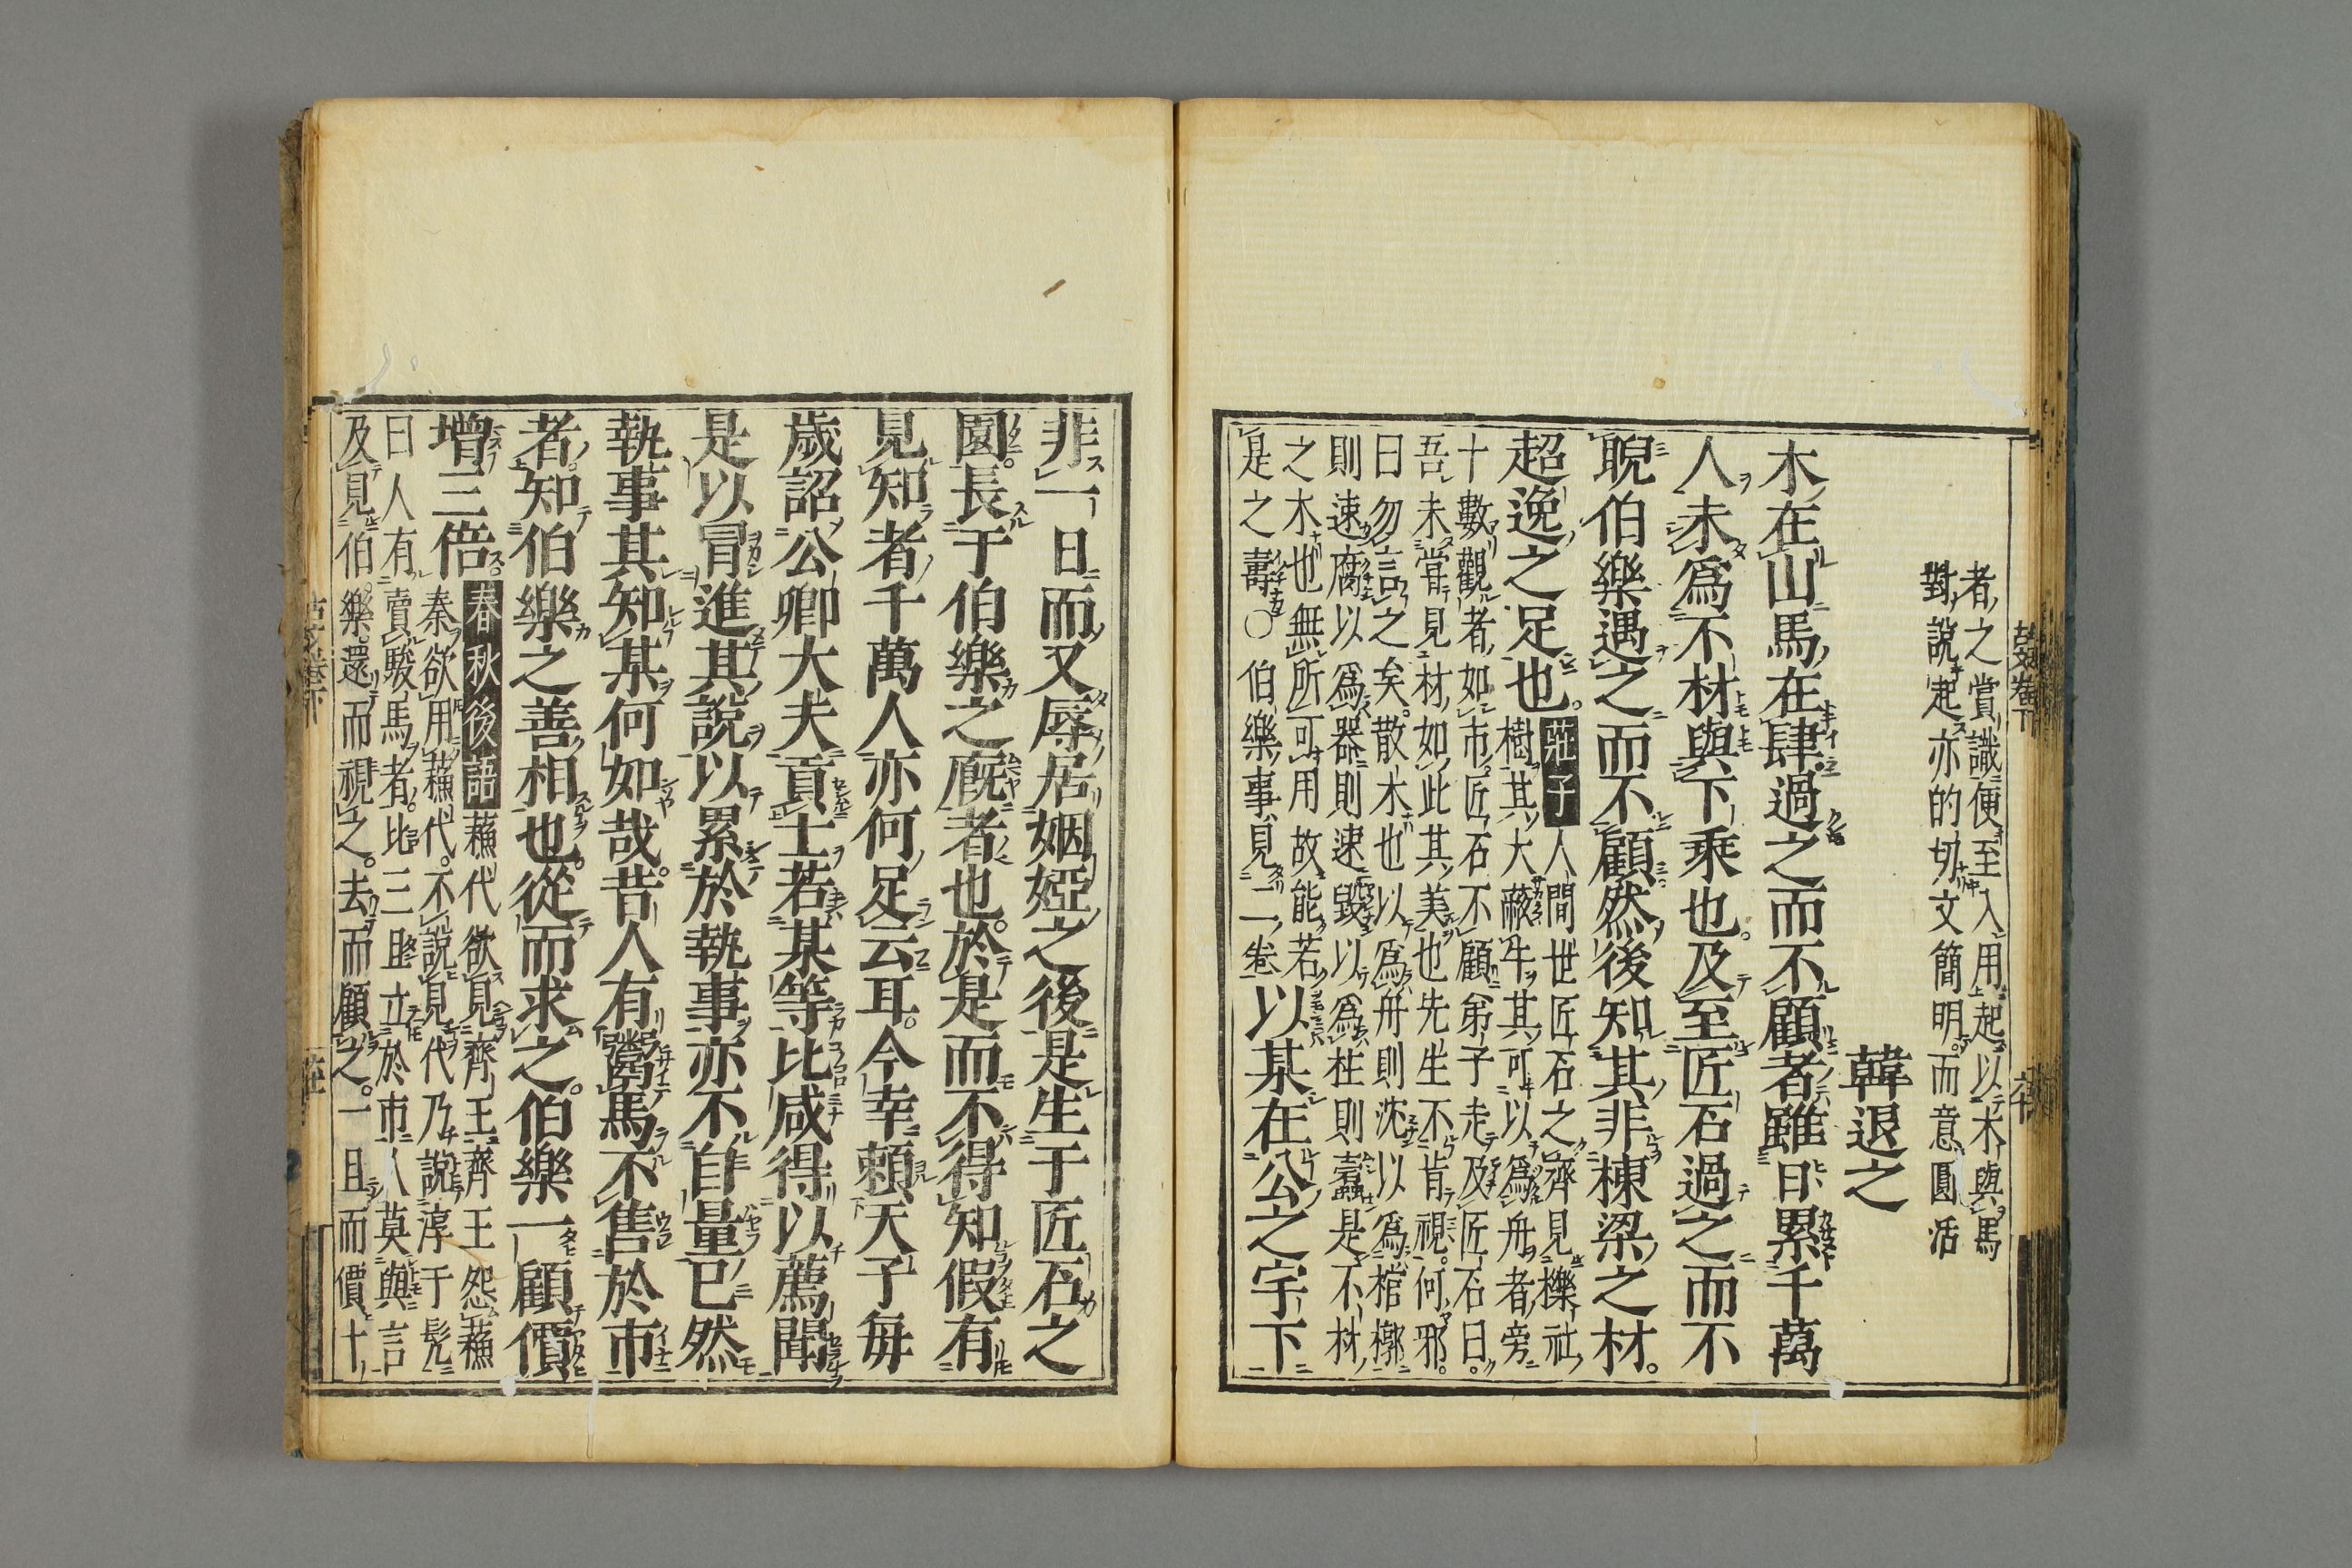 者之賞識便至入用起以木與馬
對說起亦的切文簡明而意圓活
韓退之
木在山馬在肆過之而不顧者雖日累千萬
人未爲不材與下乘也及至匠石過之而不
睨伯樂遇之而不顧然後知其非棟梁之材
超逸之足也莊子人間世匠石之齊見櫟社
樹其大蔽牛其可以爲舟者旁
十數觀者如市匠石不顧弟子走及匠石曰
吾未嘗見材如此其美也先生不肯視何邪
曰勿言之矣散木也以爲舟則沈以爲棺槨
則速腐以爲器則速毀以爲柱則蠹是不材
之木也無所可用故能若
是之壽○伯樂事見二卷以某在公之宇下
非一日而又辱居姻婭之後是生于匠石之
園長于伯樂之廐者也於是而不得知假有
見知者千萬人亦何足云耳今幸賴天子每
歲詔公卿大夫貢士若某等比咸得以薦聞
是以冐進其說以累於執事亦不自量已然
執事其知某何如哉昔人有鬻馬不售於市
者知伯樂之善相也從而求之伯樂一顧價
增三倍春秋後語蘓代欲見齊王齊王怨蘓
秦欲用蘓代不說見代乃說淳于髡
曰人有賣駿馬者比三旦立於市人莫與言
及見伯樂還而視之去而顧之一旦而價十